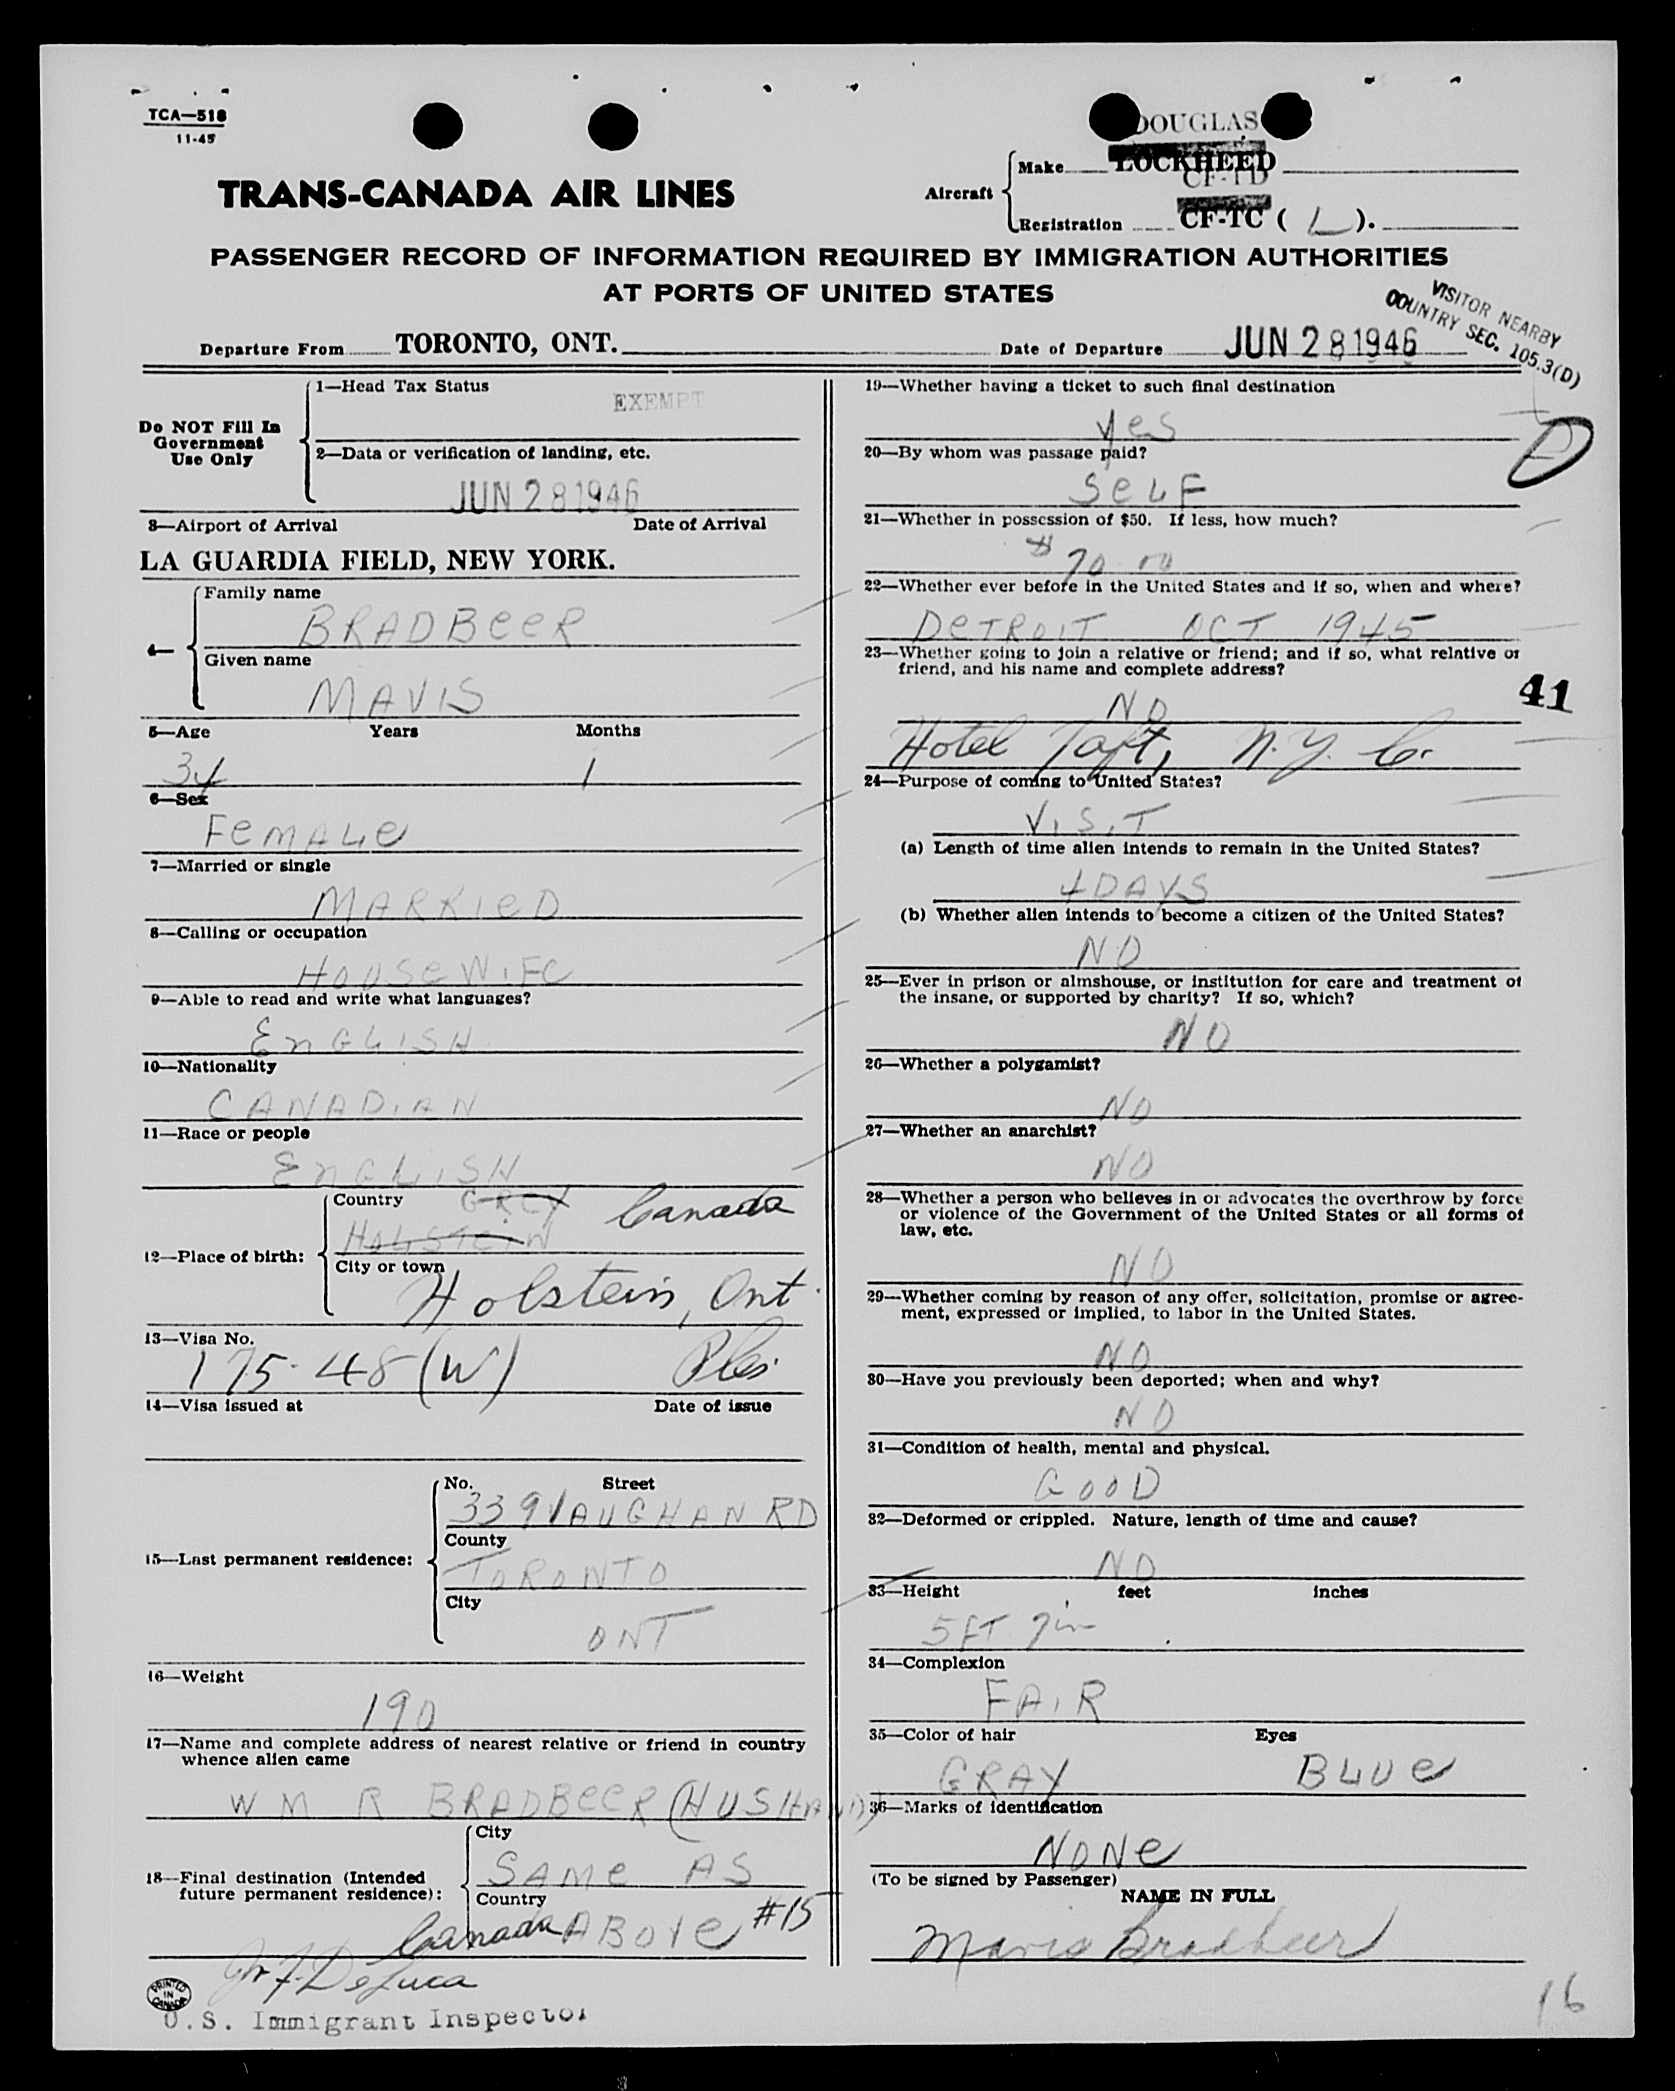 TCA—518
11-45
DOUGLAS
TRANS-CANADA AIR LINES
Aircraft
Make LOCKHEED
CF-TD
Registration CF-TC ( L ).
PASSENGER RECORD OF INFORMATION REQUIRED BY IMMIGRATION AUTHORITIES
AT PORTS OF UNITED STATES
VISITOR NEARBY
COUNTRY SEC. 105.3(D)
Departure From TORONTO, ONT. Date of Departure JUN 28 1946
Do NOT Fill In
Government
Use Only
1—Head Tax Status
EXEMPT
2—Data or verification of landing, etc.
JUN 28 1946
3—Airport of Arrival Date of Arrival
LA GUARDIA FIELD, NEW YORK.
4—
Family name
BRADBeeR
Given name
MAVIS
5—Age Years Months
34 1
6—Sex
FeMALe
7—Married or single
MARRIeD
8—Calling or occupation
HOUSeWIFe
9—Able to read and write what languages?
EnGLISH
10—Nationality
CANADIAN
11—Race or people
EnGLISH
12—Place of birth:
Country GReY Canada
HOLSTeIN
City or town
Holstein, Ont.
13—Visa No.
175-48(W)
14—Visa issued at Date of issue
15—Last permanent residence:
No. Street
339 VAUGHAN RD
County
TORONTO
City
ONT
16—Weight
190
17—Name and complete address of nearest relative or friend in country
whence alien came
WM R BRADBeeR (HUSHAND)
18—Final destination (Intended
future permanent residence):
City
SAMe AS
Country
Canada ABOVe #15
DeLuca
PRINTED
IN
CANADA
U.S. Immigrant Inspector
19—Whether having a ticket to such final destination
yes
D
20—By whom was passage paid?
SeLF
21—Whether in possession of $50. If less, how much?
$70.00
22—Whether ever before in the United States and if so, when and where?
DeTROIT OCT 1945
23—Whether going to join a relative or friend; and if so, what relative or
friend, and his name and complete address?
41
NO
Hotel Taft, N.Y.C.
24—Purpose of coming to United States?
VISIT
(a) Length of time alien intends to remain in the United States?
4 DAYS
(b) Whether alien intends to become a citizen of the United States?
NO
25—Ever in prison or almshouse, or institution for care and treatment of
the insane, or supported by charity? If so, which?
NO
26—Whether a polygamist?
NO
27—Whether an anarchist?
NO
28—Whether a person who believes in or advocates the overthrow by force
or violence of the Government of the United States or all forms of
law, etc.
NO
29—Whether coming by reason of any offer, solicitation, promise or agree-
ment, expressed or implied, to labor in the United States.
NO
30—Have you previously been deported; when and why?
NO
31—Condition of health, mental and physical.
GOOD
32—Deformed or crippled. Nature, length of time and cause?
NO
33—Height feet inches
5 FT 7 in
34—Complexion
FAIR
35—Color of hair Eyes
GRAY BLUe
36—Marks of identification
NONe
(To be signed by Passenger)
NAME IN FULL
Mavis Bradbeer
16